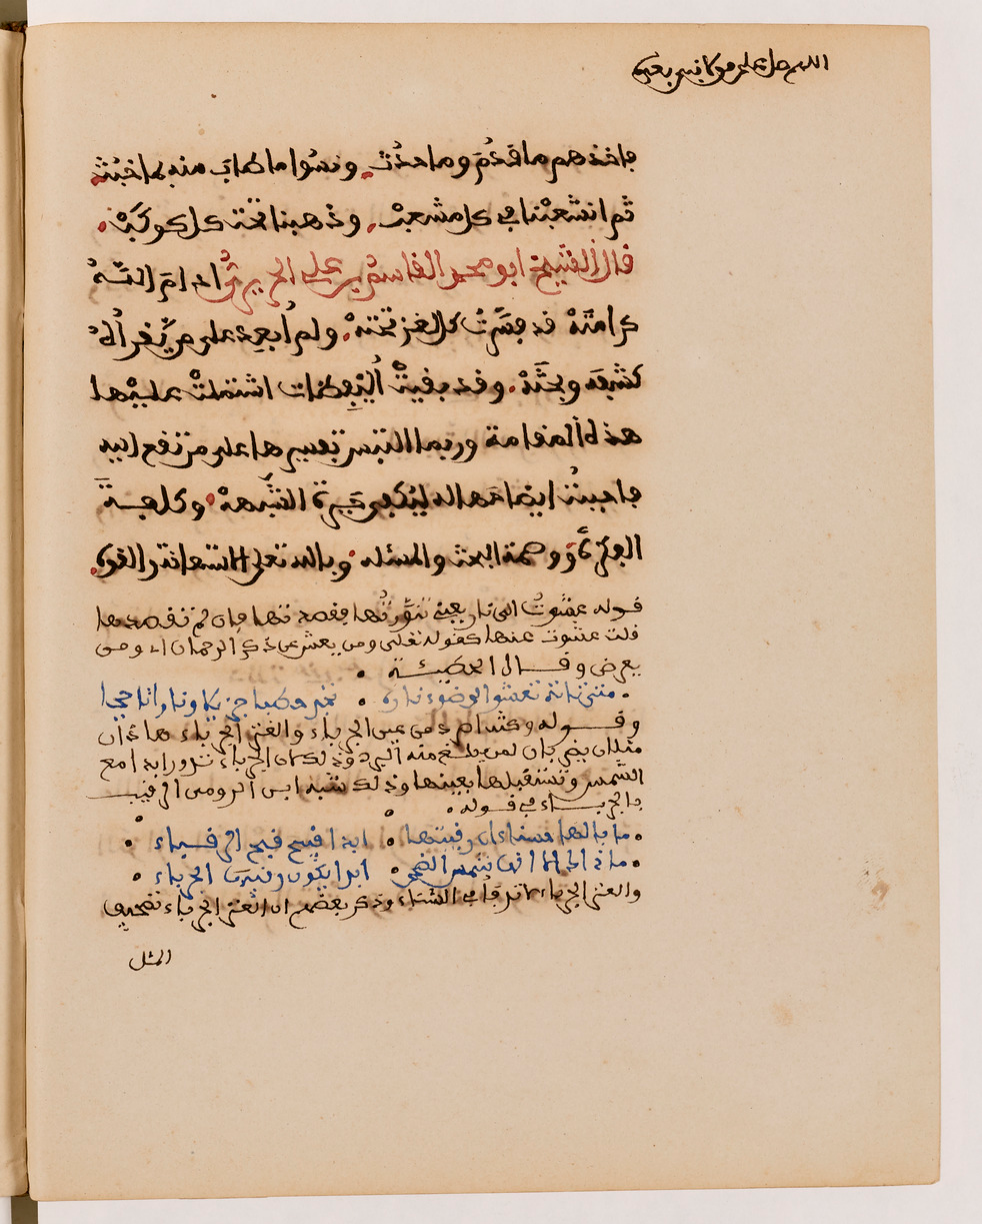 اللهم صل على مولانا
فاخذهم ما قدم وما حدث ونسوا ما طاب منه بما خبث
ثم انشعبنا في كل مشعب وذهبنا تحت كل كوكب
قال الشيخ ابو محمد القاسم بن علي الحريري ادام الله
كرامته قد فسرت كل لغز تحته ولم ابعده على من يقرأه
كشفه وبحثه وقد بقيت اليفظات اشتملت عليها
هذه المقامة وربما التبس تفسيرها على من تقع اليه
فاحببت ايضاحها له ليكفى حيرة الشبهة وكلفة
الفكرة ووصمة البحث والمسئلة وبالله تعلى الاستعانة والقوة
قوله عشوت الى نار يعني تنورتها فقصدتها فان لم تقصدها
قلت عشوت عنها كقوله تعلى ومن يعش عن ذكر الرحمان اي ومن
يعرض وقال الحطيئة
متى تاته تعشوا الى ضوء ناره تجد حطبا جزلا ونارا تاججا
وقوله وكنت اصرد من عين الحرباء والعنز الجرباء هاذان
مثلان يضربان لمن يبلغ منه البرد وذلك ان الحرباء تدور ابدا مع
الشمس وتستقبلها بعينها وذلك شبه ابن الرومي الرقيب
بالحرباء في قوله
ما بالها قد حسنت ورقيبها ابدا قبيح قبح الرقباء
ما ذاك الا انها شمس الضحى ابدا يكون رقيبها الحرباء
والعنز الجرباء لا تدفأ في الشتاء وذكر بعضهم ان العنز الجرباء تصحيف
المثل